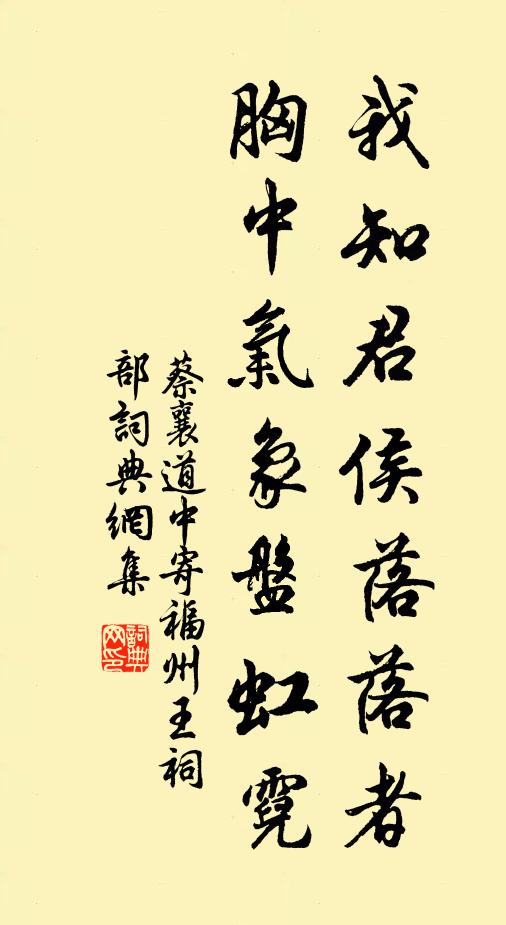 我知君侯落落者
胸中氣象盤虹霓
蔡襄道中寄福州王祠
部詞典網集
詞典
网印